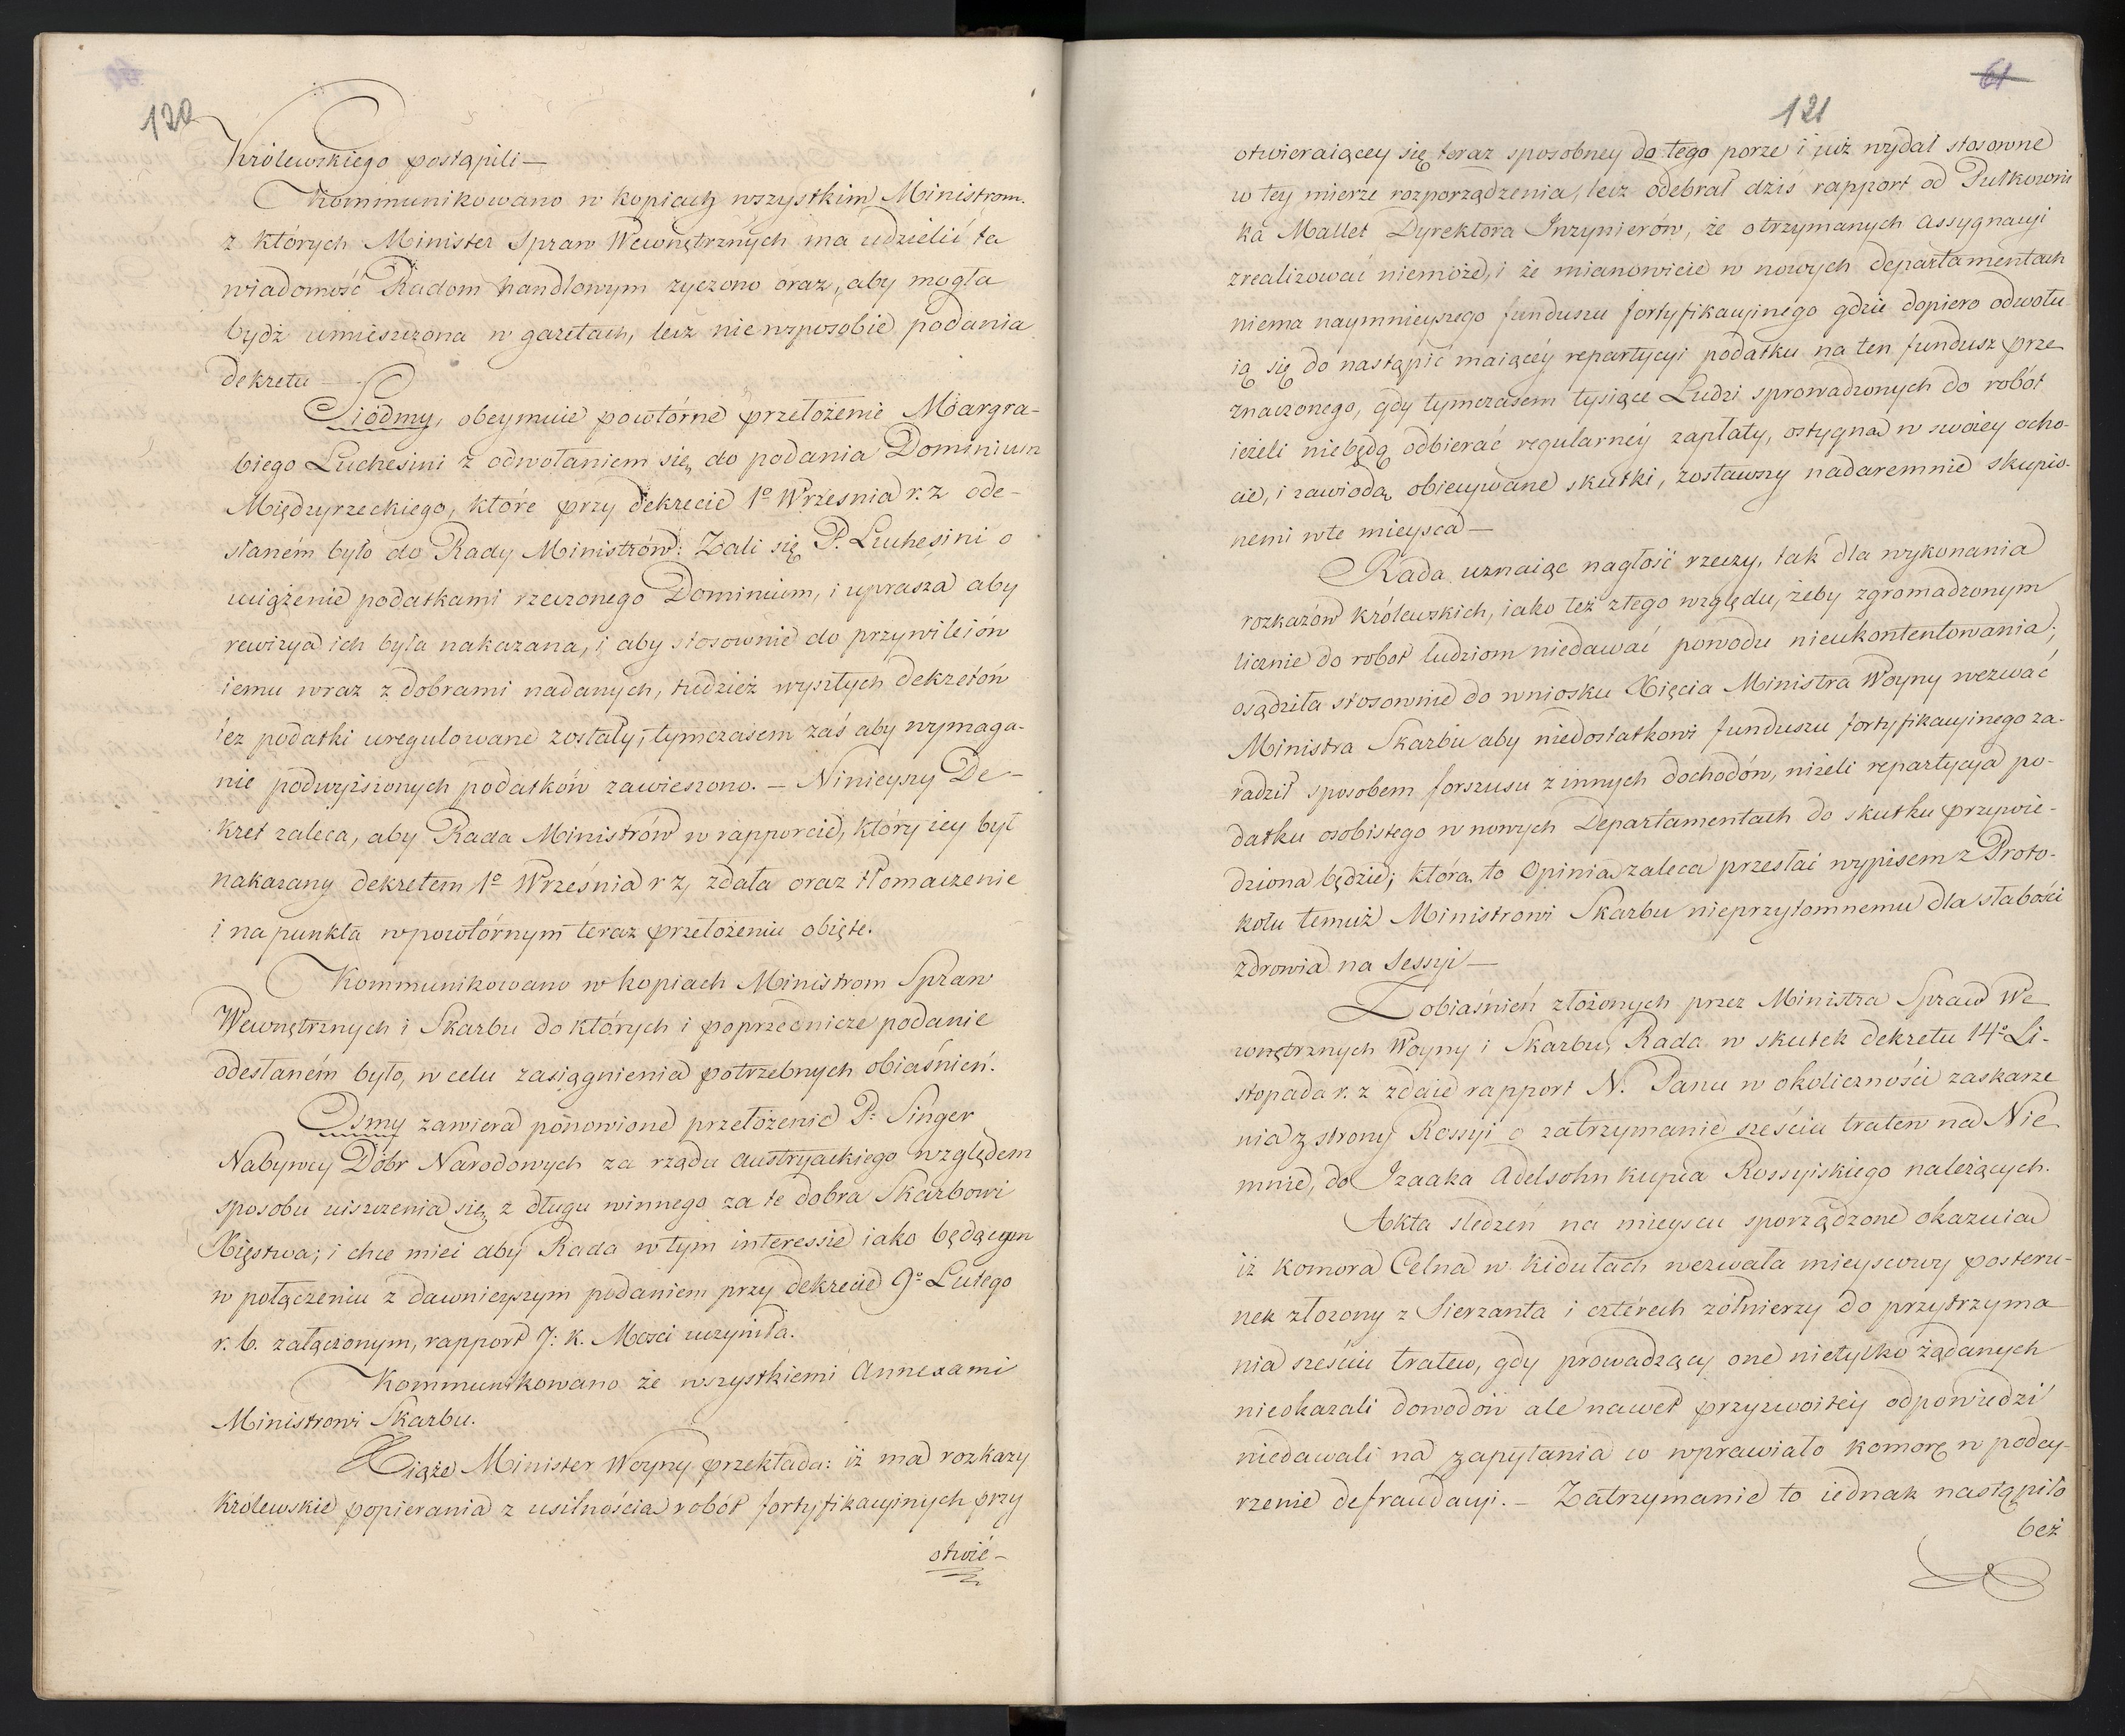 120
Królewskiego postąpili —
Kommunikowano w kopiach wszystkim Ministrom.
z których Minister Spraw Wewnętrznych ma údzielić ta
wiadomość Radom handlowym zyczono oraz, aby mogła
bydź umieszczona w gazetach, lecz nie wsposobie podania
dekretu —
Siódmy, obeymuie powtórne przełożenie Margra-
biego Luchesini z odwołaniem się do podania Dominium
Międzyrzeckiego, które przy dekrecie 1º Września r. z ode-
słaném było do Rady Ministrów: Żali się P. Luchesini o
uciążenie podatkami rzeczonego Dominium, i uprasza aby
rewizya ich była nakazana, i aby stosownie do przywileiów
iemu wraz z dobrami nadanych, tudzież wyszłych dekretów
też podatki uregulowane zostały, tymczasem zaś aby wymaga-
nie podwyższonych podatków zawieszono. — Ninieyszy De-
kret zaleca, aby Rada Ministrów w rapporcie, który iey był
nakazany dekretem 1º Września r z, zdała oraz tłomaczenie
i na punkta w powtórnym teraz przełożeniu obięte.
Kommunikowano w kopiach Ministrom Spraw
Wewnętrznych i Skarbu do których i poprzednicze podanie
odesłaném było, w celu zasiągnienia potrzebnych obiaśnień.
Osmy zawiera ponowione przełożenie P: Singer
Nabywcy Dóbr Narodowych za rządu Austryackiego względem
sposobu uiszczenia się z długu winnego za te dobra Skarbowi
Xięstwa; i chce mieć aby Rada w tym interessie iako będącym
w połączeniu z dawnieyszym podaniem przy dekrecie 9º Lutego
r. b. załączonym, rapport J: K. Mości uczyniła.
Kommunikowano że wszystkiemi Annexami
Ministrowi Skarbu.
Xiąże Minister Woyny przekłada: iż ma rozkazy
Królewskie popierania z usilnością robót fortyfikacyinych przy
otwié-
61
121
otwieraiącey się teraz sposobney do tego porze i już wydał stosowne
w tey mierze rozporządzenia, lecz odebrał dziś rapport od Pułkowni
ka Mallet Dyrektora Inzynierów, że otrzymanych Assygnacyi
zrealizować niemoże, i że mianowicie w nowych departamentach
niema naymnieyszego funduszu fortyfikacyinego gdzie dopiero odwołu
ią się do nastąpić maiącéy repartycyi podatku na ten fundusz prze
znaczonego, gdy tymczasem tysiące Ludzi sprowadzonych do robót
ieżeli niebędą odbierać regularnéy zapłaty, ostygną w swoiey ocho-
cie, i zawiodą obiecywane skutki, zostawszy nadaremnie skupio-
nemi w te mieysca —
Rada uznaiąc nagłość rzeczy, tak dla wykonania
rozkazów królewskich, iako też z tego względu, żeby zgromadzonym
licznie do robot ludziom niedawać powodu nieukontentowania;
osądziła stosownie do wniosku Xięcia Ministra Woyny wezwać
Ministra Skarbu aby niedostatkowi funduszu fortyfikacyinego za-
radził sposobem forszusu z innych dochodów, niżeli repartycya po-
datku osobistego w nowych Departamentach do skutku przywie-
dziona będzie; która to Opinia zaleca przesłać wypisem z Proto-
kołu temuż Ministrowi Skarbu nieprzytomnemu dla słabości
zdrowia na Sessyi —
Z obiaśnień złożonych przez Ministra Spraw We
wnętrznych Woyny i Skarbu, Rada w skutek dekretu 14º Li-
stopada r. z zdaie rapport N. Panu w okoliczności zaskarze
nia z strony Rossyi o zatrzymanie sześciu tratew na Nie
mnie, do Izaaka Adelsohn kupca Rossyiskiego należących.
Akta sledzeń na mieyscu sporządzone okazuią
iż komora Celna w Kidułach wezwała mieyscowy posteru-
nek złożony z Sierzanta i cztérech zółnierzy do przytrzyma
nia sześciu tratew, gdy prowadzący one nietylko żądanych
nieokazali dowodów ale nawet przyzwoitéy odpowiedzi
niedawali na zapytania co wprawiało komorę w podey-
rzenie defraudacyi. — Zatrzymanie to iednak nastąpiło
bez